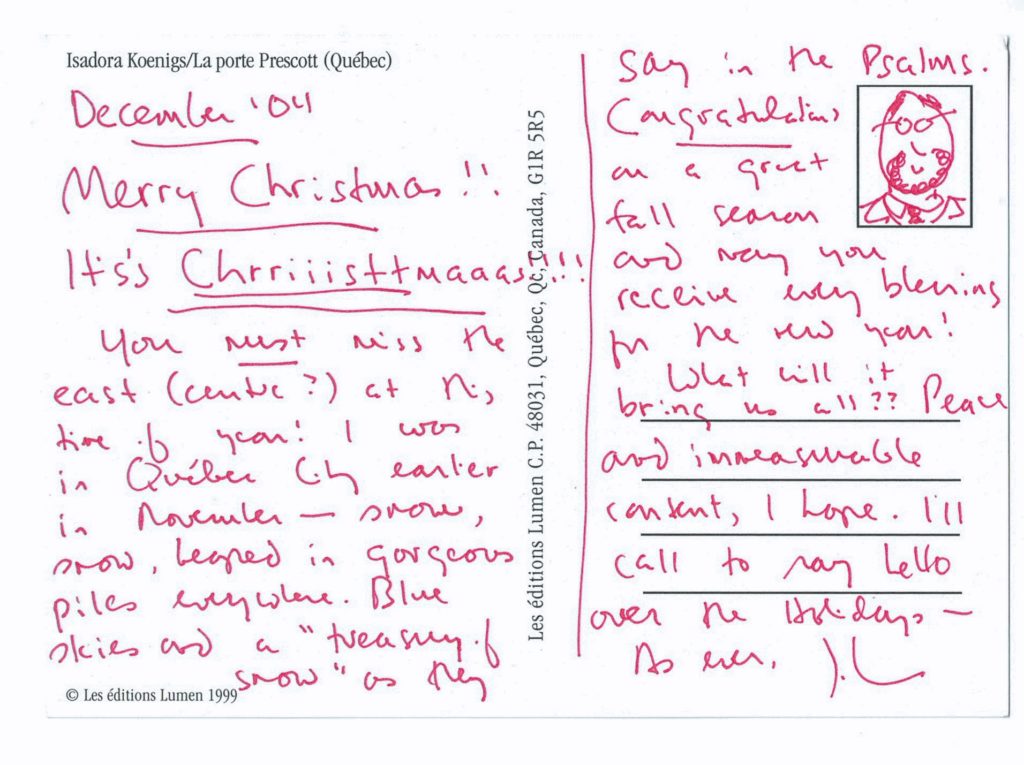 Isadora Koenigs/La porte Prescott (Québec)
December '04
Merry Christmas!!
It's's Chrriiisttmaaas!!!!
You must miss the
east (centre?) at this
time of year! I was
in Québec City earlier
in November — snow,
snow, heaped in gorgeous
piles everywhere. Blue
skies and a "treasury of
snow" as they
© Les éditions Lumen 1999
Les éditions Lumen C.P. 48031, Québec, Qc, Canada, G1R 5R5
say in the Psalms.
Congratulations
on a great
fall season
and may you
receive every blessing
for the new year!
What will it
bring us all?? Peace
and immeasurable
content, I hope. I'll
call to say hello
over the Holidays —
As ever,